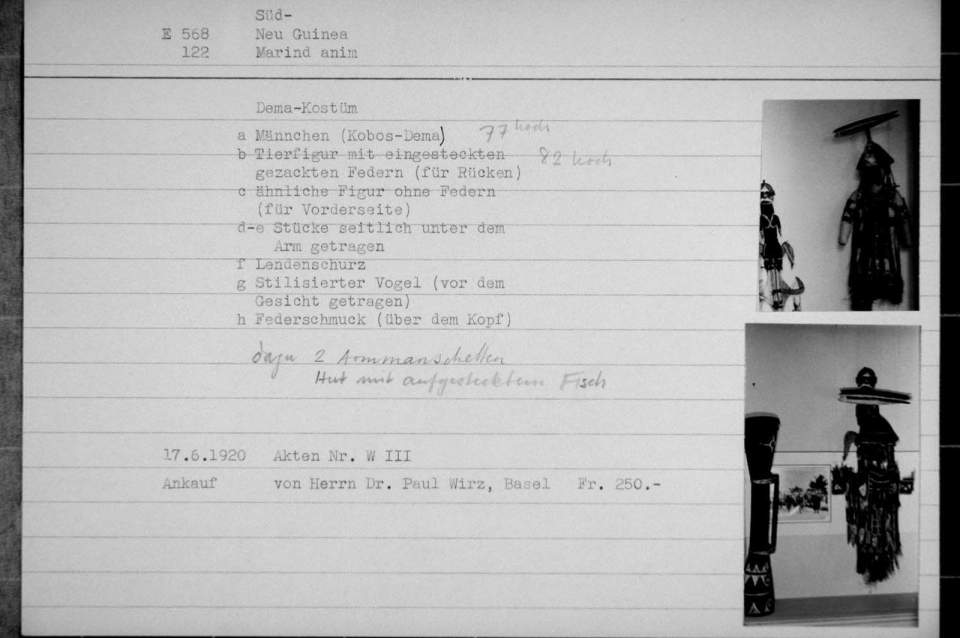 Süd-
E 568 Neu Guinea
122 Marind anim
Dema-Kostüm
a Männchen (Kobos-Dema) 77 hoch
b Tierfigur mit eingesteckten 82 hoch
gezackten Federn (für Rücken)
c ähnliche Figur ohne Federn
(für Vorderseite)
d-e Stücke seitlich unter dem
Arm getragen
f Lendenschurz
g Stilisierter Vogel (vor dem
Gesicht getragen)
h Federschmuck (über dem Kopf)
dazu 2 Armmanschetten
Hut mit aufgestecktem Fisch
17.6.1920 Akten Nr. W III
Ankauf von Herrn Dr. Paul Wirz, Basel Fr. 250.-